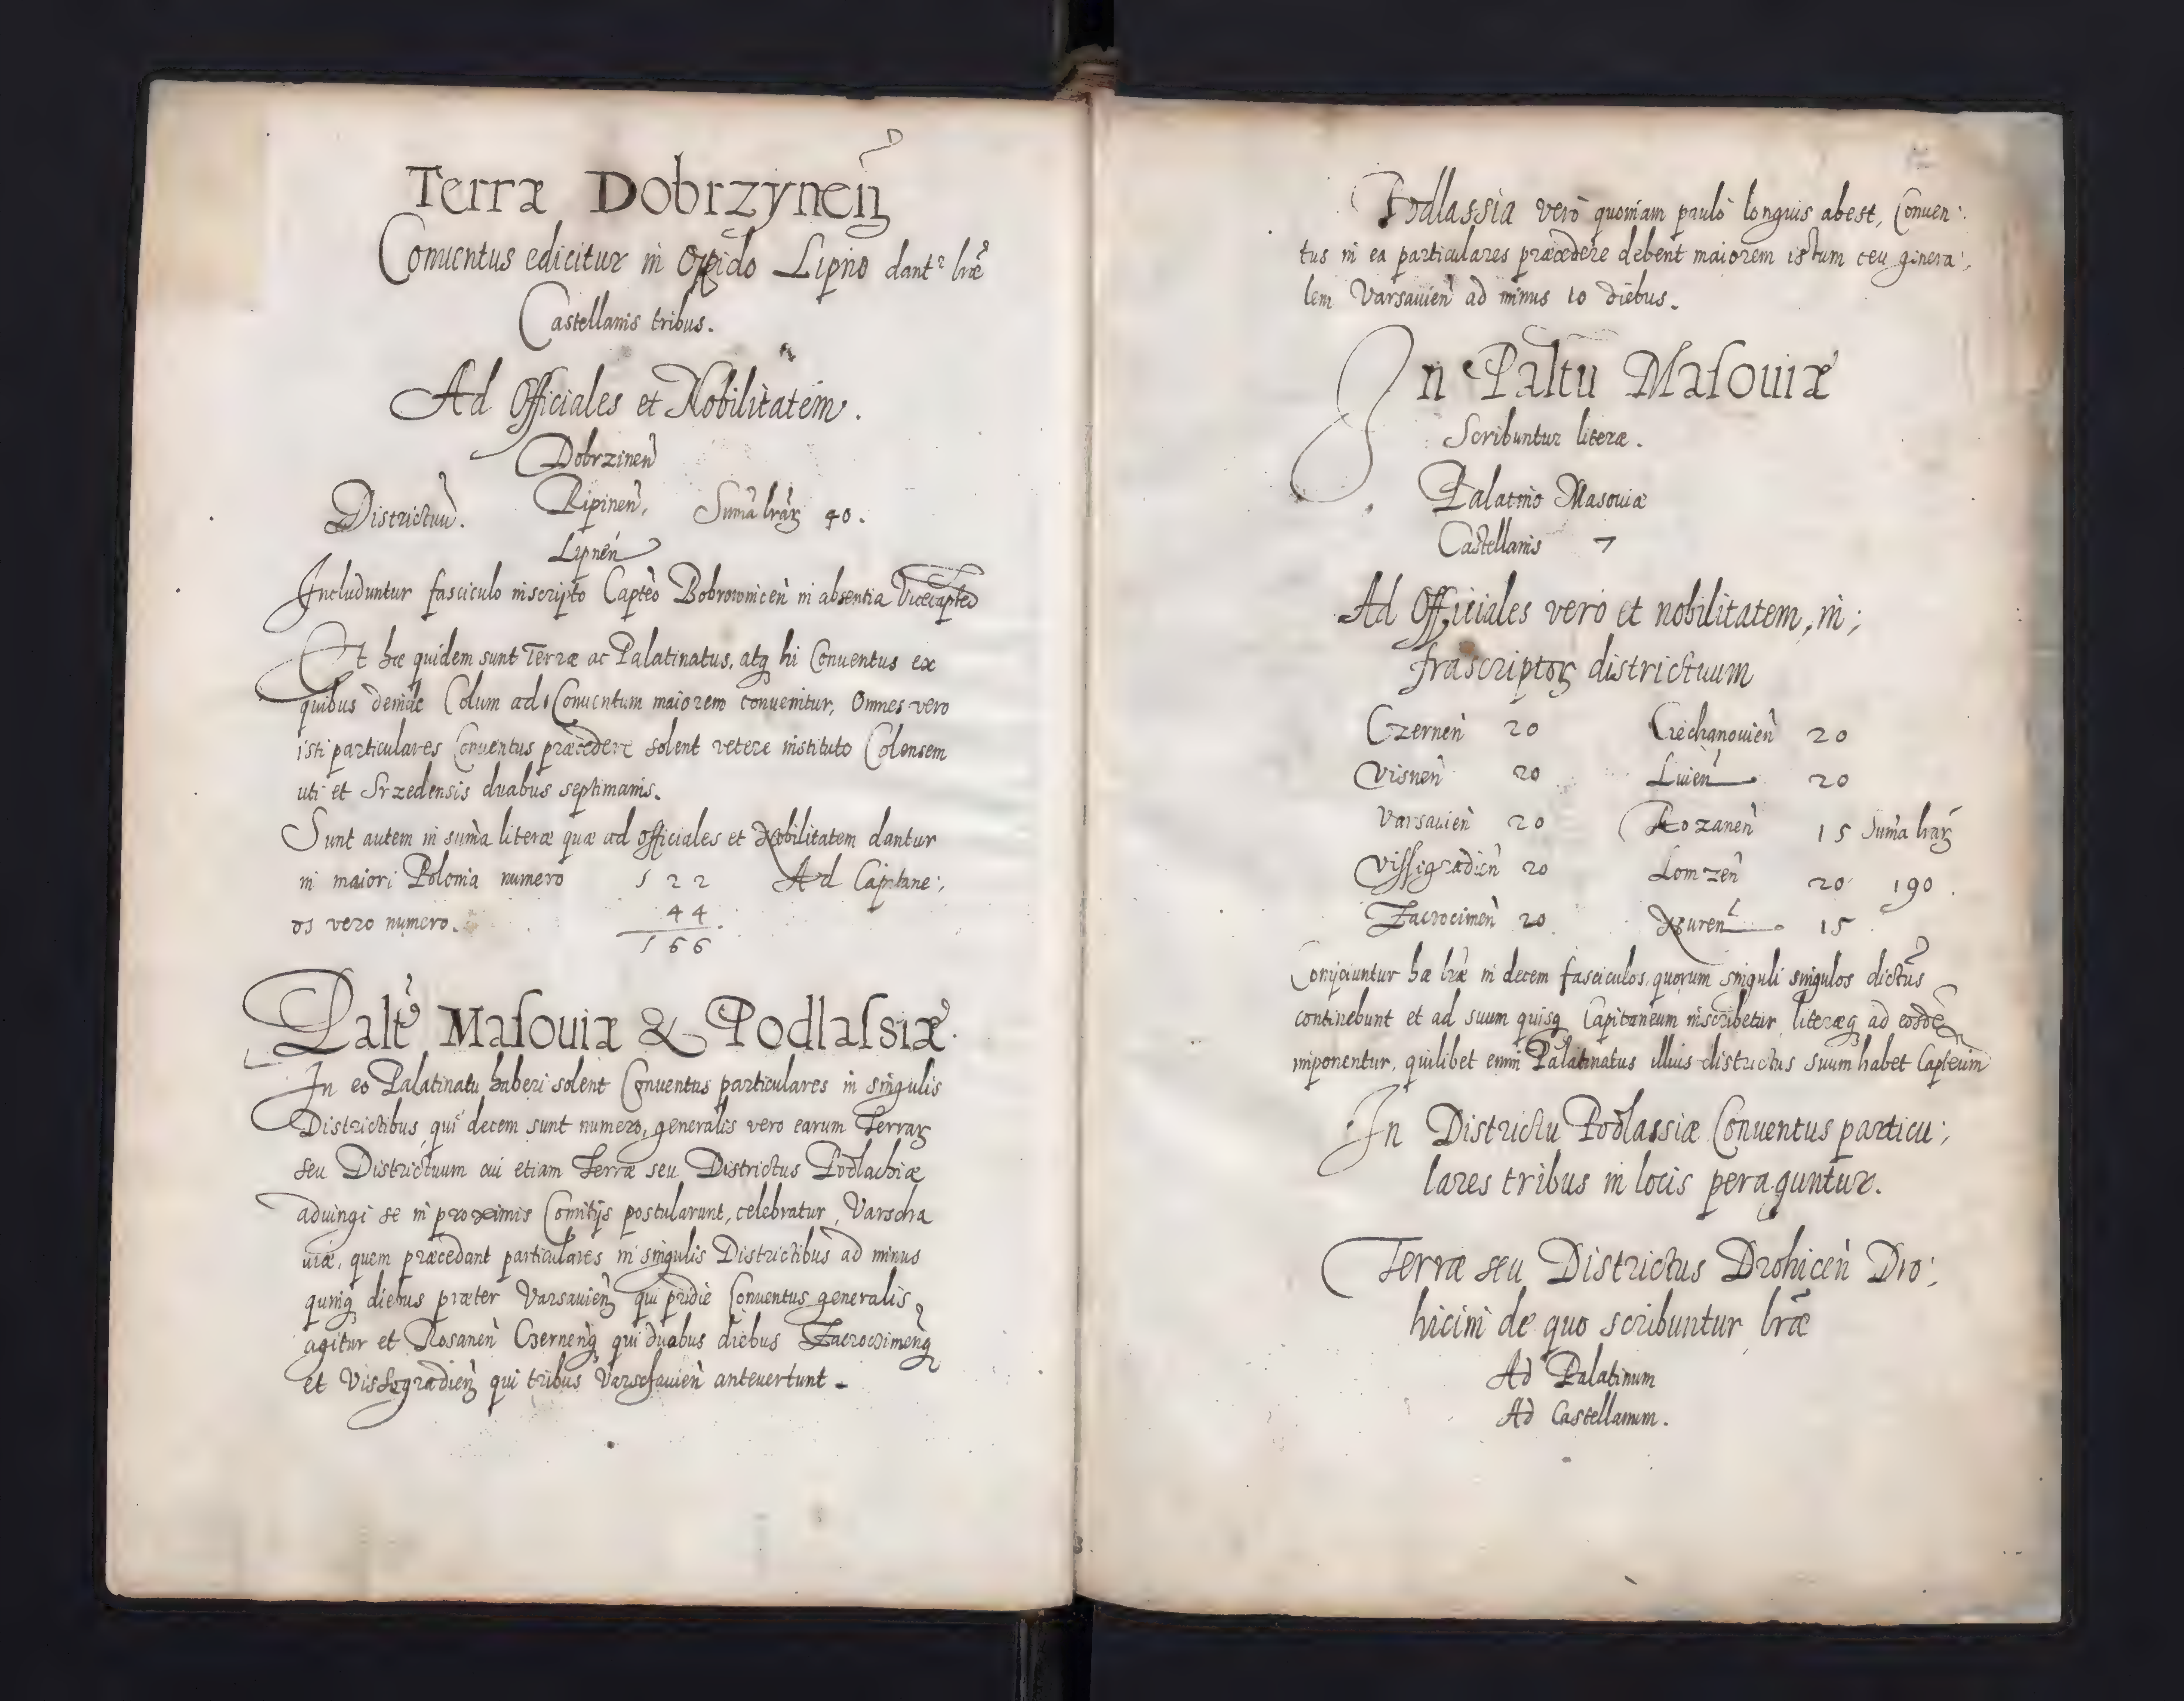 Terræ Dobrzyneñ
Conuentus edicitur in Oppido Lipno dantr lræ
Castellanis tribus.
Ad Officiales et Nobilitatem.
Dobrzineñ
Districtuũ. Ripineñ, Suma lrãꝝ 40.
Lipneñ
Includuntur fasciculo inscripto Capteo Bobrownicen in absentia Vicecapteo
Et hæ quidem sunt Terræ ac Palatinatus, atq hi Conuentus ex
quibus deinde Colum ad Conuentum maiorem conuenitur, Omnes vero
isti particulares Conuentus præcedere solent vetere instituto Colensem
uti et Srzedensis duabus septimanis.
Sunt autem in suma literæ quæ ad officiales et Nobilitatem dantur
in maiori Polonia numero 522 Ad Capitane:
os vero numero. 44
566
Palt9 Masouiæ & Podlassiæ.
In eo Palatinatu haberi solent Conuentus particulares in singulis
Districtibus, qui decem sunt numero, generalis vero earum Terraꝝ
seu Districtuum cui etiam Terræ seu Districtus Podlachiæ
adiungi se in proximis Comitijs postularunt, celebratur Varscha
uiæ, quem præcedant particulares in singulis Districtibus ad minus
quinq diebus præter Varsauieñ qui pridie Conuentus generalis
agitur et Rosaneñ Czerneñq qui duobus diebus Zacrocimeñq
et Vissegradieñ qui tribus Varschauieñ anteuertunt.
Podlassia verò quoniam paulò longius abest, Conuen:
tus in ea particulares præcedere debent maiorem istum ceu genera:
lem Varsauień ad minus 10 diebus.
In Paltu Masouiæ
Scribuntur literæ.
Palatino Masouiæ
Castellanis 7
Ad Officiales vero et nobilitatem, in:
frascriptoꝝ districtuum
Czerneñ 20 Ciechanouieñ 20
Visneñ 20 Liuieñ 20
Varsauieñ 20 Rozaneñ 15 Suma lrãꝝ
Vissegradieñ 20 Lomzeñ 20 190.
Zacrocimeñ 20. Nureñ 15
Conijciuntur hæ lræ in decem fasciculos, quorum singuli singulos dictus
continebunt et ad suum quisq Capitaneum inscribetur, literæq ad eosdẽ
imponentur, quilibet enim Palatinatus illius districtus suum habet Capteum
In Districtu Podlassiæ Conuentus particu:
lares tribus in locis peraguntur.
Terræ seu Districtus Drohiceñ Dro:
hicini de quo scribuntur lræ
Ad Palatinum
Ad Castellanum.